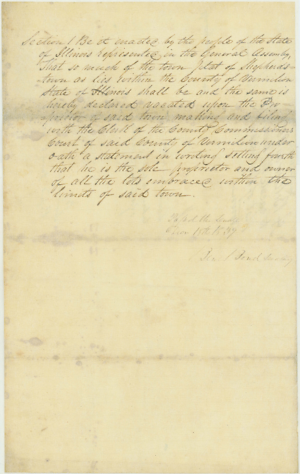 Section 1 Be it enacted by the people of the State
of Illinois represented in the General Assembly,
that so much of the town plat of Shepherds-
town as lies within the County of Vermilion
State of Illinois shall be and the same is
hereby declared vacated upon the Pro-
prietor of said town making and filing
with the Clerk of the County Commissioners
Court of said County of Vermilion under
oath a statement in writing setting forth
that he is the sole proprietor and owner
of all the lots embraced within the
limits of said town.